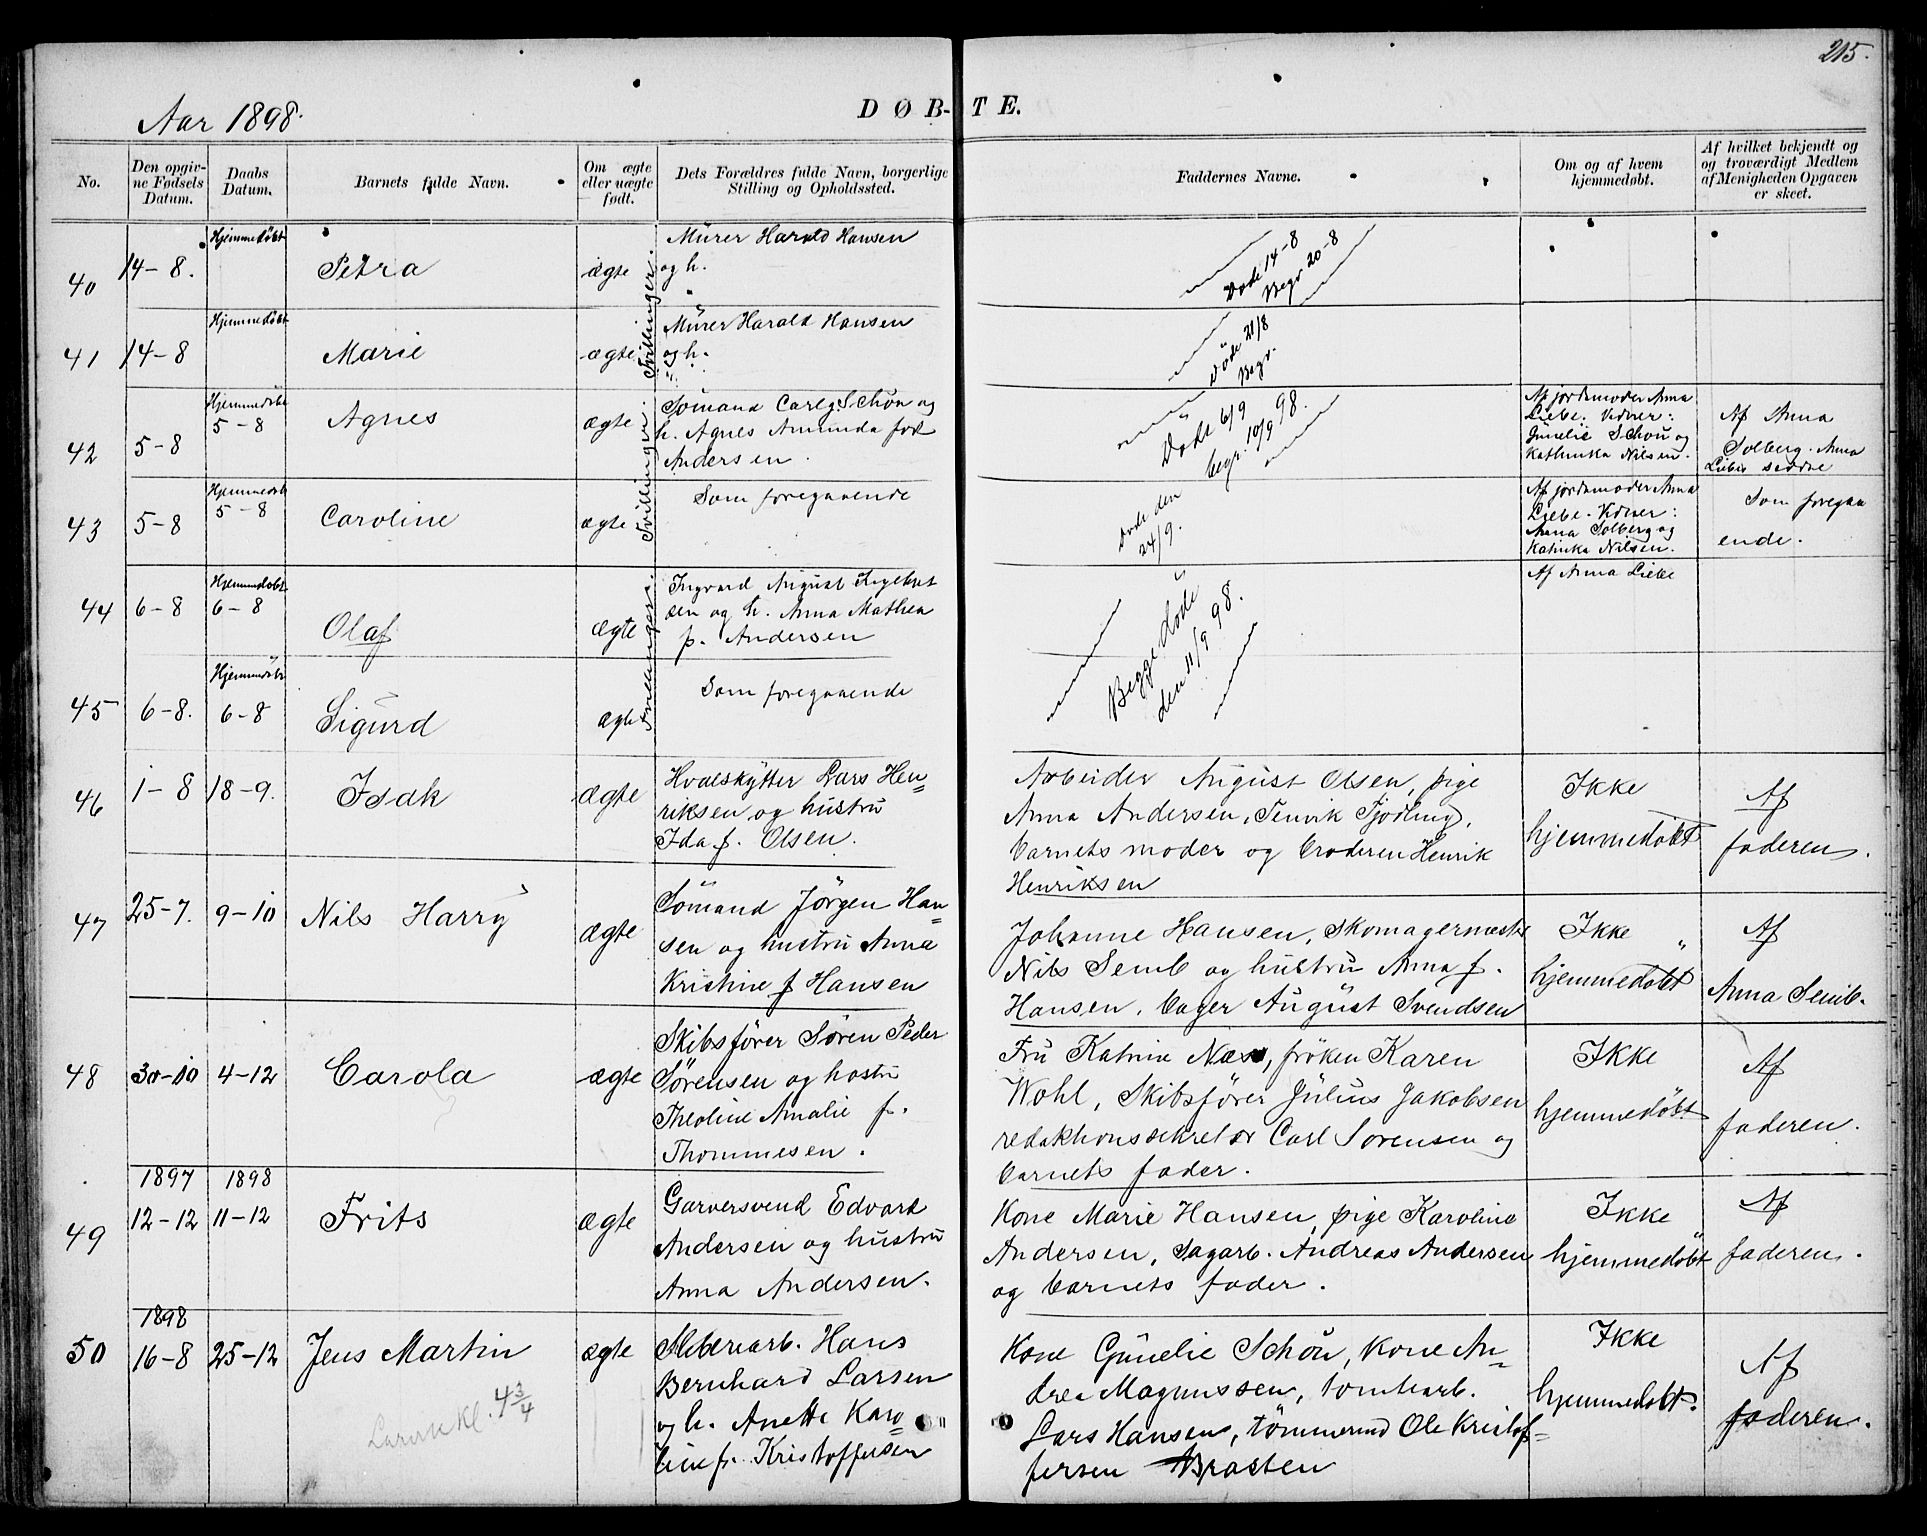 215.
Aar 1898.
DØB-TE.
No.
Den opgiv-
ne Fødsels
Datum.
Daabs
Datum.
Barnets fulde Navn.
Om ægte
eller uægte
født.
Dets Forældres fulde Navn, borgerlige
Stilling og Opholdssted.
Faddernes Navne.
Om og af hvem
hjemmedøbt.
Af hvilket bekjendt og
og troværdigt Medlem
af Menigheden Opgaven
er skeet.
40
14-8.
Hjemmedøbt
Petra
ægte
Tvillinger.
Murer Harald Hansen
og h.
Døde 14-8
Begr 20-8
41
14-8
Hjemmedøbt
Marie
ægte
Murer Harald Hansen
og h.
Døde 21/8
Begr.
42
5-8
Hjemmedøbt
5-8
Agnes
ægte
Tvillinger.
Sømand Carl Schøn og
h. Agnes Amunda fød
Andersen.
Døde 6/9
begr. 10/9 98.
Af jordemoder Anna
Liebe. Vidner:
Gunelie Schou og
Kathinka Nilsen.
Af Anna
Solberg. Anna
Liebes
43
5-8
Hjemmedøbt
5-8
Caroline
ægte
Som foregaaende
Døde den
24/9.
Af jordemoder Anna
Liebe. Vidner:
Anna Solberg og
Katinka Nilsen.
Som foregaa
ende.
44
6-8
Hjemmedøbt
6-8
Olaf
ægte
Tvillinger.
Ingvard August
sen og h. Anna Mathea
f. Andersen
Begge døde
den 11/9 98.
Af Anna Liebe
45
6-8.
Hjemmedøbt
6-8
Sigurd
ægte
Som foregaaende
46
1-8
18-9.
Isak
ægte
Hvalskytter Lars Hen=
riksen og hustru
Ida f. Olsen.
Arbeider August Olsen, pige
Anna Andersen, Tenvik Tjødling,
barnets moder og broderen Henrik
Henriksen
Ikke
hjemmedøbt
Af
faderen.
47
25-7.
9-10
Nils Harry
ægte
Sømand Jørgen Han=
sen og hustru Anna
Kristine f Hansen
Johanne Hansen, Skomagermester
Nils Semb og hustru Anna f.
Hansen, bager August Svendsen
Ikke
hjemmedøbt
Af
Anna Semb.
48
30-10
4-12
Carola
ægte
Skibsfører Søren Peder
Sørensen og hustru
Theoline Amalie f.
Thommesen.
Fru Katrine Næss, frøken Karen
Wohl, Skibsfører Julius Jakobsen
redaktionssekretær Carl Sørensen og
barnets fader.
Ikke
hjemmedøbt
Af
faderen.
49
1897
12-12
1898
11-12
Frits
ægte
Garversvend Edvard
Andersen og hustru
Anna Andersen.
Kone Marie Hansen, pige Karoline
Andersen, Sagarb. Andreas Andersen
og barnets fader.
Ikke
hjemmedøbt
Af
faderen.
50
1898
16-8
25-12
Jens Martin
4 3/4
ægte
Sliberiarb. Hans
Bernhard Larsen
og h. Anette Karo=
line f. Kristoffersen
Kone Gunelie Schøn, Kone An=
drea Magnussen, tomtearb.
Lars Hansen, tømmermd Ole Kristof=
fersen Brasten
Ikke
hjemmedøbt.
Af
faderen.